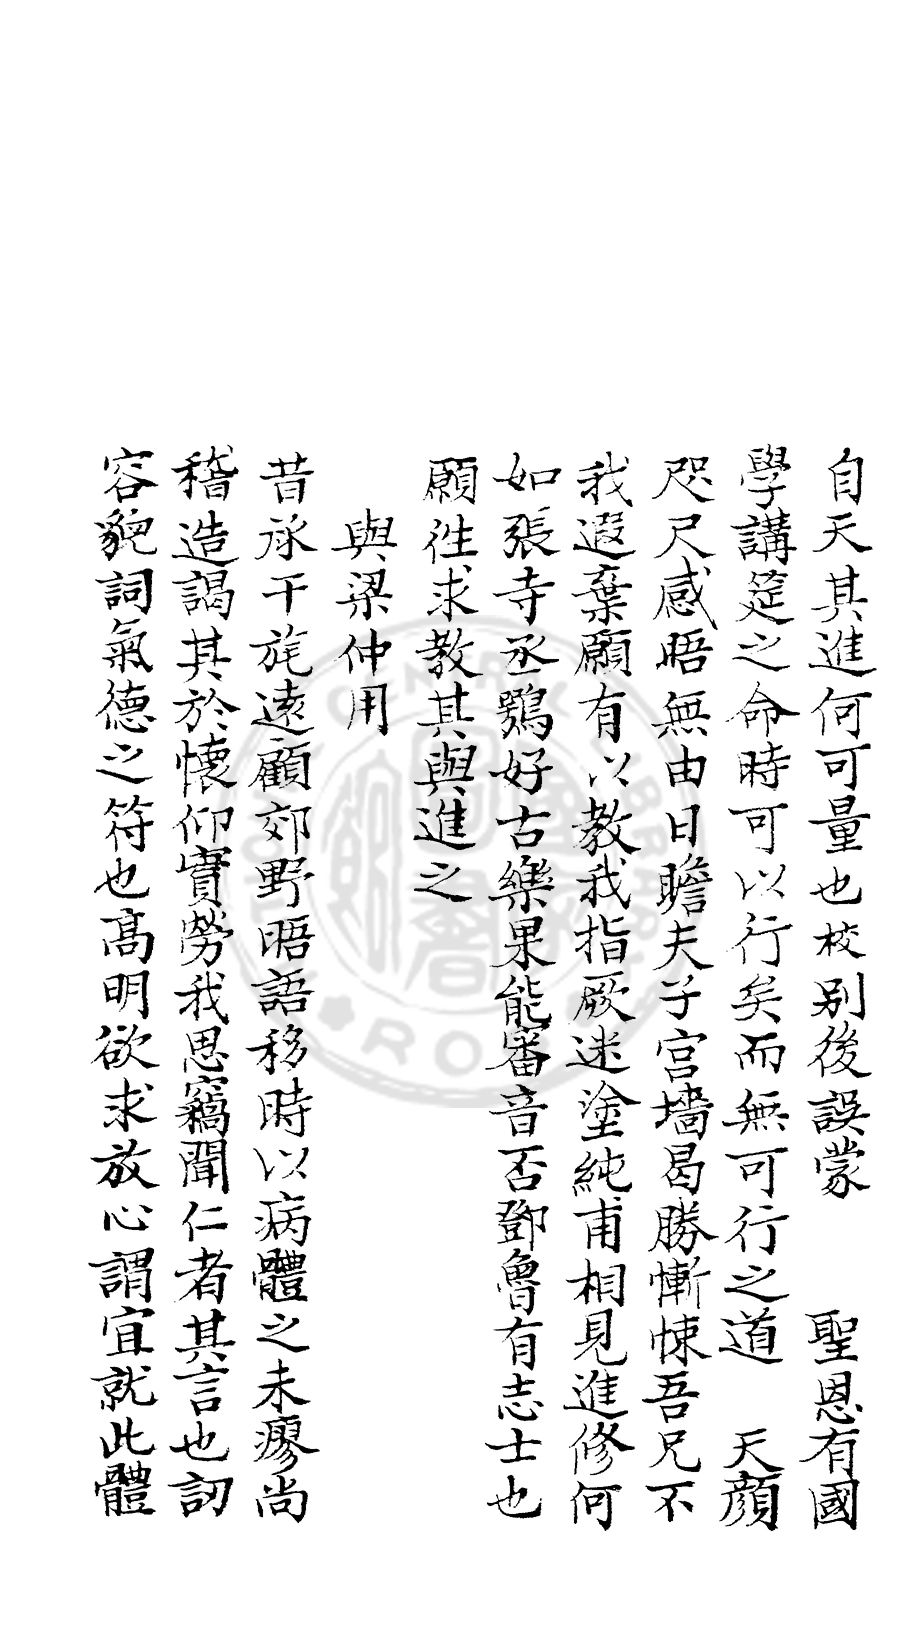 自天其進何可量也校别後誤蒙　聖恩有國
學講筵之命時可以行矣而無可行之道　天顔
咫尺感晤無由日瞻夫子宫墻曷勝慚悚吾兄不
我遐棄願有以教我指厥迷塗純甫相見進修何
如張寺丞鶚好古樂果能審音否鄧魯有志士也
願徃求教其與進之
與梁仲用
昔承干旄遠顧郊野晤語移時以病體之未瘳尚
稽造謁其於懷仰實勞我思竊聞仁者其言也訒
容貌詞氣德之符也髙明欲求放心謂宜就此體
CENTRAL LIBRARY